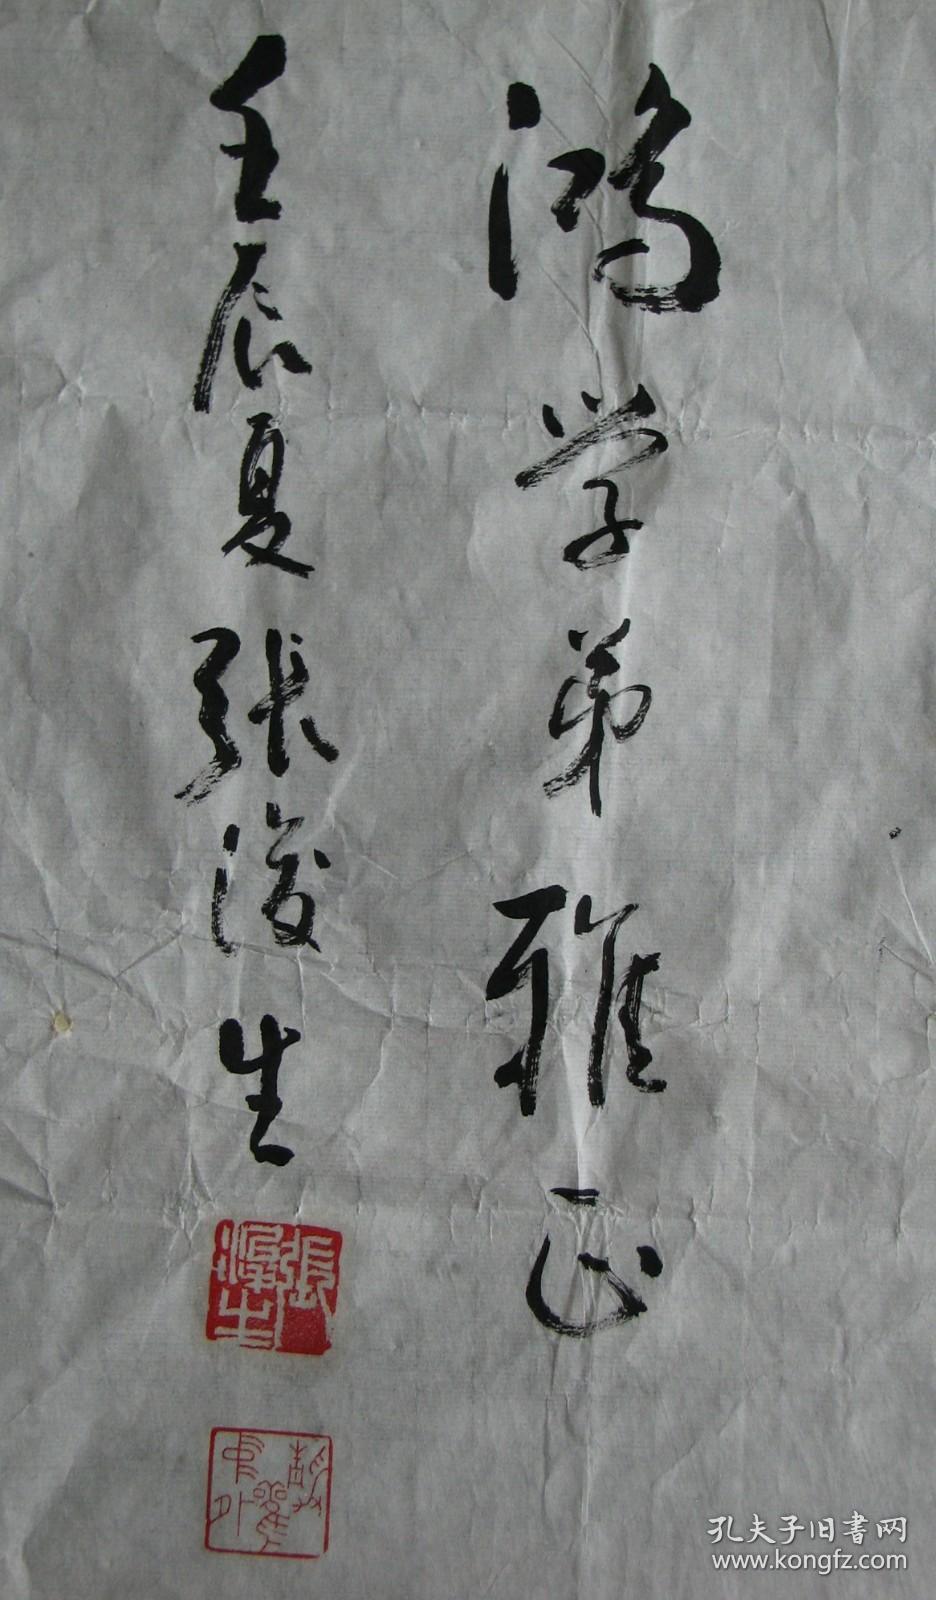 鸿学弟雅正
壬辰夏張浚生
張浚生
孔夫子旧書网
www.kongfz.com